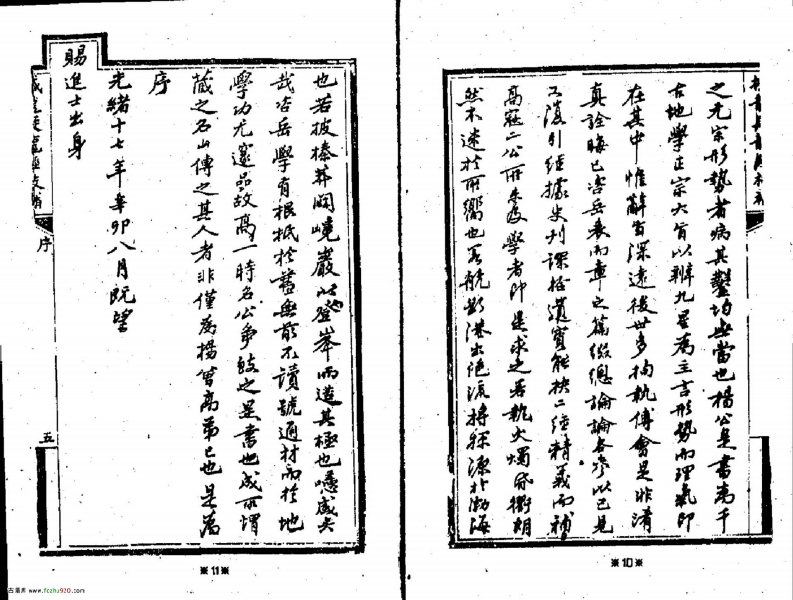 之元宗形勢者病其鑿均無當也楊公是書為千
古地學正宗大旨以辨九星為主言形勢而理氣即
在其中惟辭旨深遠後世多拘執傅會是非淆
真詮晦已岳表而章之篇綴總論論各參以己見
又復引經據史刊誤拾遺實能抉二經精義而補
高寇二公所未及學者即是求之若執火燭昏衢朗
然不迷於所嚮也若航斷港出絕流揚深源於渤海
※10※
也若披榛莽闢嶢巖以登峯而造其極也噫盛矣
哉岳學有根柢於書無所不讀號通材而於地
學功尤邃品故高一時名公爭致之是書也成所謂
藏之名山傳之其人者非僅為楊曾高弟已也是為
序
光緒十七年辛卯八月既望
賜進士出身
序
五
※11※
古易库 www.fczhu920.com